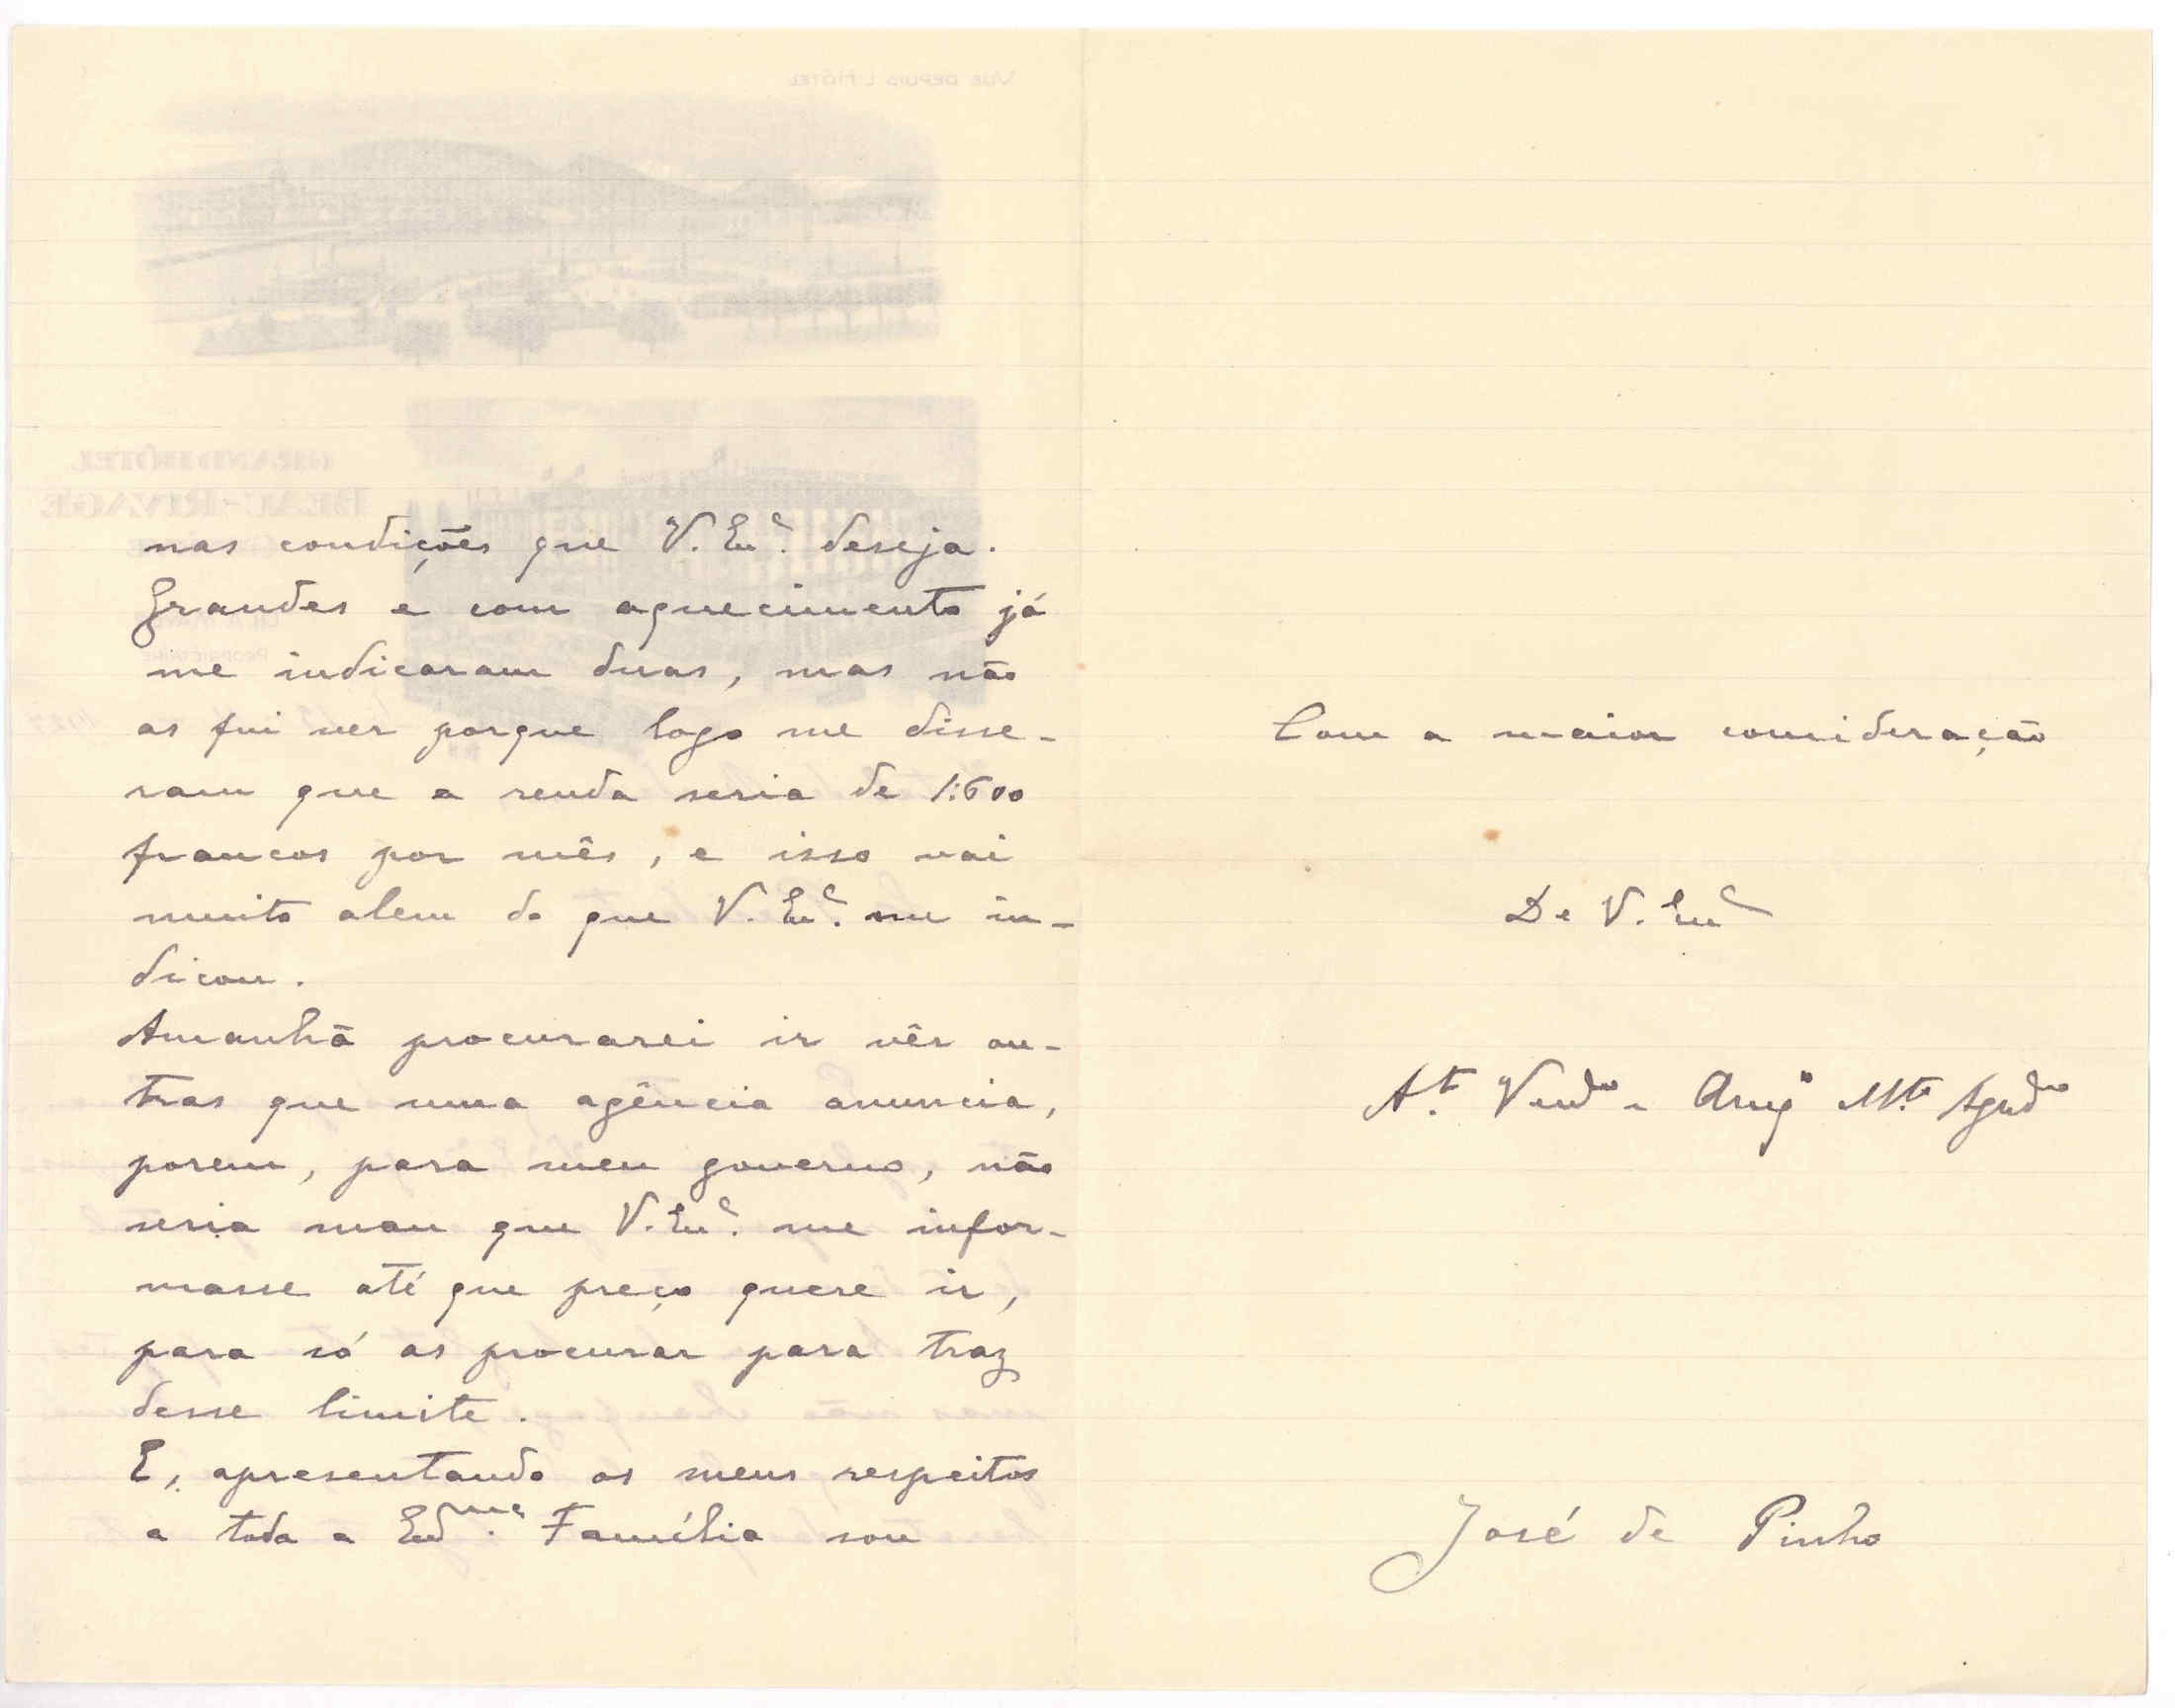 VUE DEPUIS L'HÔTEL
GRAND HÔTEL
BEAU-RIVAGE
PROPRIÉTAIRE
nas condições que V. Exª. deseja.
Grandes e com aquecimento já
me indicaram duas, mas não
as fui ver porque logo me disse-
ram que a renda seria de 1:600
francos por mês, e isso vai
muito alem do que V. Exª. me in-
dicou.
Amanhã procurarei ir vêr ou-
tras que uma agência anuncia,
porem, para meu governo, não
seria mau que V. Exª. me infor-
masse até que preço quere ir,
para só as procurar para traz
desse limite.
E, apresentando os meus respeitos
a toda a Exma. Família sou
Com a maior consideração
De V. Exª
At.º Vendor e Amgº Mt.º Agrdo
José de Pinho